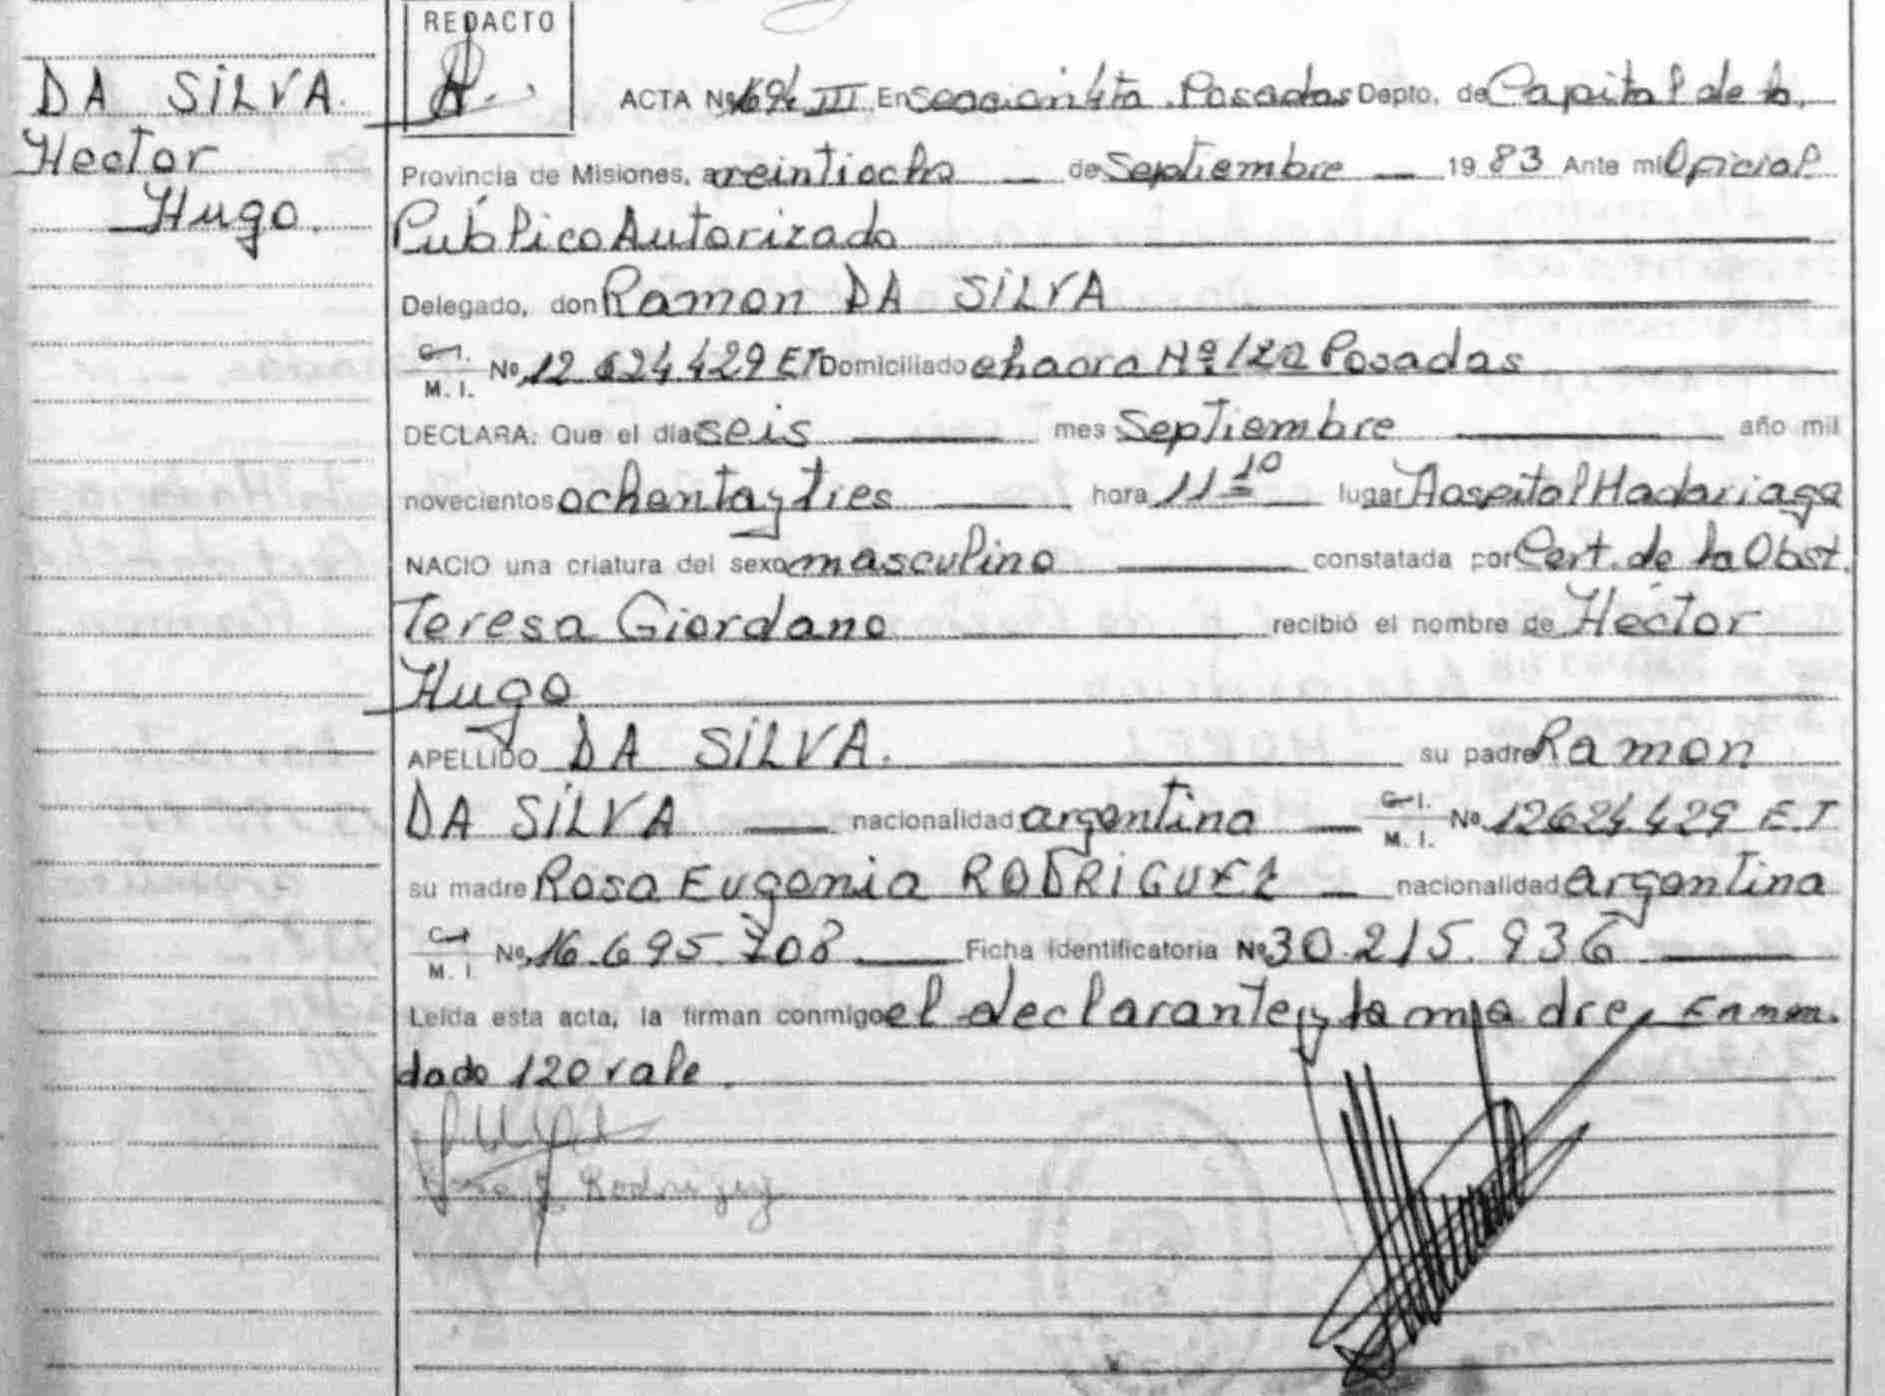 REDACTO
DA SILVA.
Hector
Hugo.
ACTA Nº III En sección 4ta Posadas Depto. de Capital de la
Provincia de Misiones, a veintiocho de Septiembre 19 83 Ante mi Oficial
Público Autorizado
Delegado, don Ramon DA SILVA
C. I.
M. I. Nº 12 624 429 ET Domiciliado chacra Nº 120 Posadas
DECLARA: Que el día seis mes Septiembre año mil
novecientos ochenta y tres hora 11 10 lugar Hospital Madariaga
NACIO una criatura del sexo masculino constatada por Cert. de la Obst.
Teresa Giordano recibió el nombre de Hector
Hugo
APELLIDO DA SILVA. su padre Ramon
DA SILVA nacionalidad argentina C. I.
M. I. Nº 12624429 ET
su madre Rosa Eugenia RODRIGUEZ nacionalidad argentina
C. I.
M. I. Nº 16.695.708 Ficha identificatoria Nº 30.215.936
Leída esta acta, la firman conmigo el declarante y la madre, Enmen-
dado 120 vale.
Rosa E Rodriguez